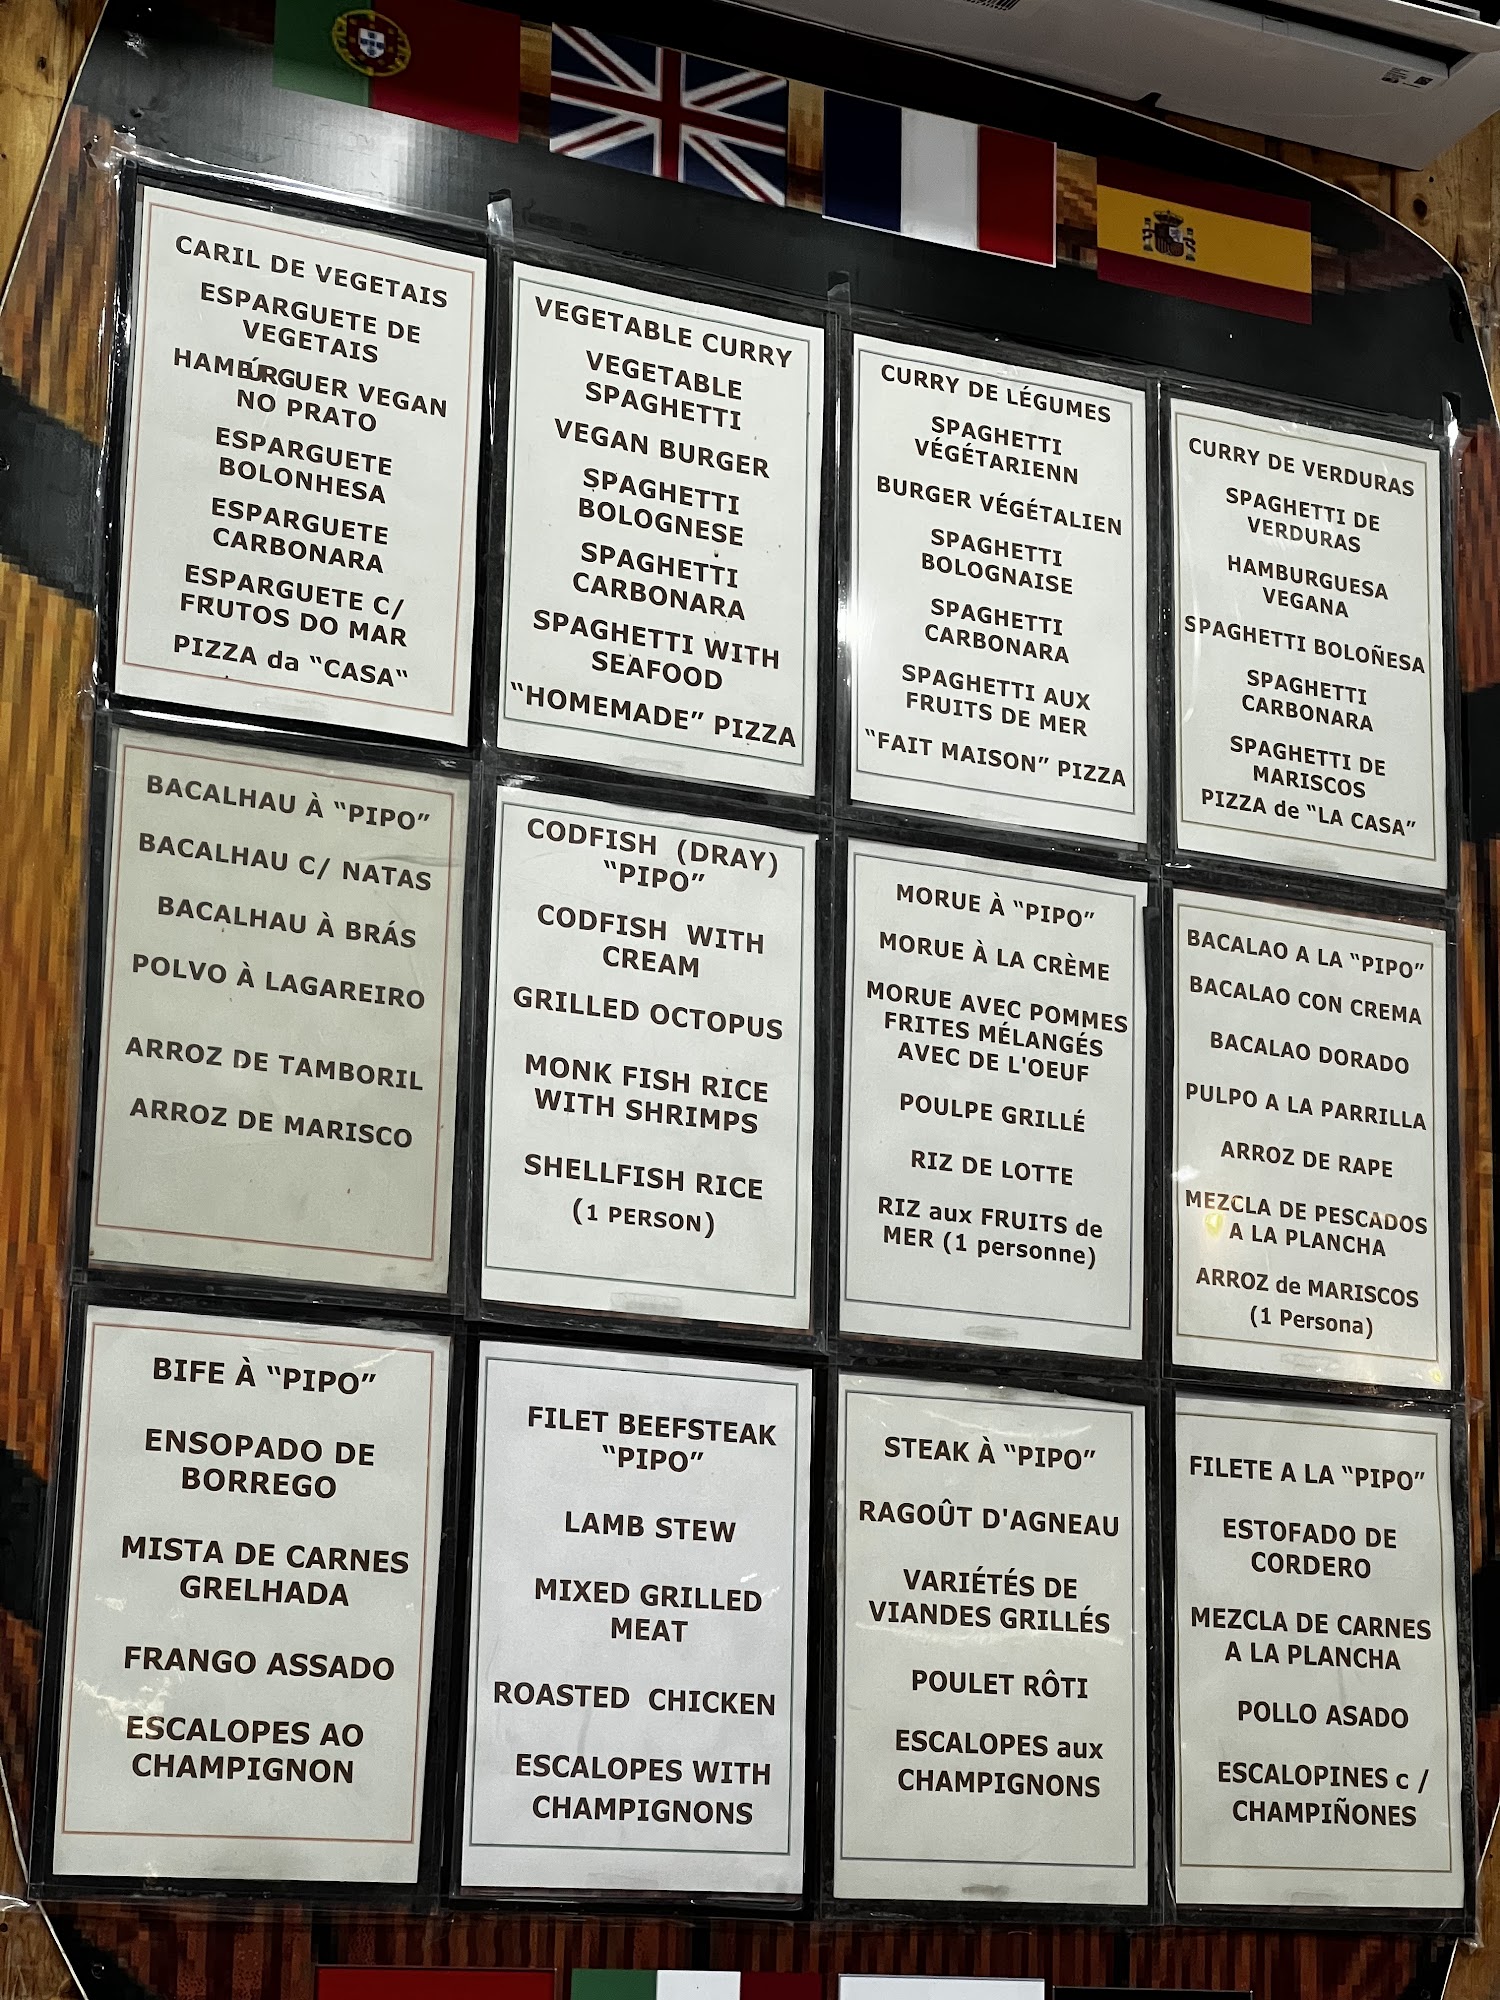 CARIL DE VEGETAIS
ESPARGUETE DE
VEGETAIS
HAMBÚRGUER VEGAN
NO PRATO
ESPARGUETE
BOLONHESA
ESPARGUETE
CARBONARA
ESPARGUETE C/
FRUTOS DO MAR
PIZZA da “CASA“
VEGETABLE CURRY
VEGETABLE
SPAGHETTI
VEGAN BURGER
SPAGHETTI
BOLOGNESE
SPAGHETTI
CARBONARA
SPAGHETTI WITH
SEAFOOD
“HOMEMADE” PIZZA
CURRY DE LÉGUMES
SPAGHETTI
VÉGÉTARIENN
BURGER VÉGÉTALIEN
SPAGHETTI
BOLOGNAISE
SPAGHETTI
CARBONARA
SPAGHETTI AUX
FRUITS DE MER
“FAIT MAISON” PIZZA
CURRY DE VERDURAS
SPAGHETTI DE
VERDURAS
HAMBURGUESA
VEGANA
SPAGHETTI BOLOÑESA
SPAGHETTI
CARBONARA
SPAGHETTI DE
MARISCOS
PIZZA de “LA CASA”
BACALHAU À “PIPO”
BACALHAU C/ NATAS
BACALHAU À BRÁS
POLVO À LAGAREIRO
ARROZ DE TAMBORIL
ARROZ DE MARISCO
CODFISH (DRAY)
“PIPO”
CODFISH WITH
CREAM
GRILLED OCTOPUS
MONK FISH RICE
WITH SHRIMPS
SHELLFISH RICE
(1 PERSON)
MORUE À “PIPO”
MORUE À LA CRÈME
MORUE AVEC POMMES
FRITES MÉLANGÉS
AVEC DE L'OEUF
POULPE GRILLÉ
RIZ DE LOTTE
RIZ aux FRUITS de
MER (1 personne)
BACALAO A LA “PIPO”
BACALAO CON CREMA
BACALAO DORADO
PULPO A LA PARRILLA
ARROZ DE RAPE
MEZCLA DE PESCADOS
A LA PLANCHA
ARROZ de MARISCOS
(1 Persona)
BIFE À “PIPO”
ENSOPADO DE
BORREGO
MISTA DE CARNES
GRELHADA
FRANGO ASSADO
ESCALOPES AO
CHAMPIGNON
FILET BEEFSTEAK
“PIPO”
LAMB STEW
MIXED GRILLED
MEAT
ROASTED CHICKEN
ESCALOPES WITH
CHAMPIGNONS
STEAK À “PIPO”
RAGOÛT D'AGNEAU
VARIÉTÉS DE
VIANDES GRILLÉS
POULET RÔTI
ESCALOPES aux
CHAMPIGNONS
FILETE A LA “PIPO”
ESTOFADO DE
CORDERO
MEZCLA DE CARNES
A LA PLANCHA
POLLO ASADO
ESCALOPINES c /
CHAMPIÑONES